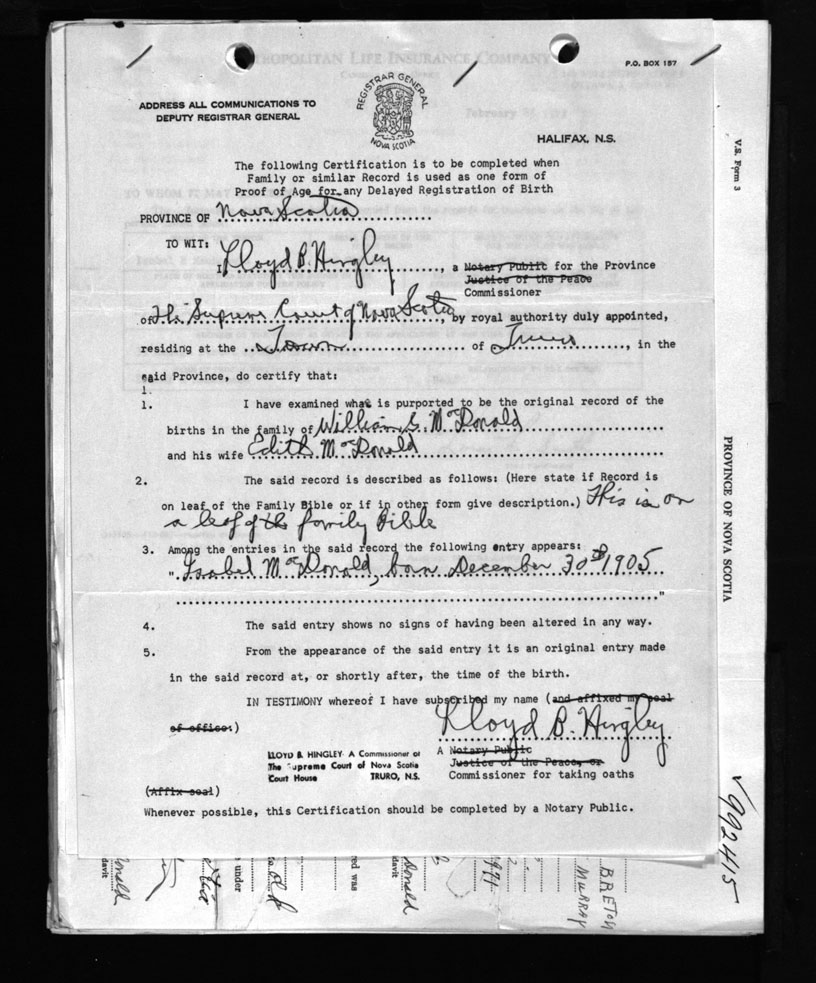 METROPOLITAN LIFE INSURANCE COMPANY
P.O. BOX 157
ADDRESS ALL COMMUNICATIONS TO
DEPUTY REGISTRAR GENERAL
REGISTRAR GENERAL
NOVA SCOTIA
HALIFAX, N.S.
The following Certification is to be completed when
Family or similar Record is used as one form of
Proof of Age for any Delayed Registration of Birth
PROVINCE OF Nova Scotia
TO WIT:
I Lloyd B. Hingley, a Notary Public for the Province
Justice of the Peace
Commissioner
of The Supreme Court of Nova Scotia, by royal authority duly appointed,
residing at the Town of Truro, in the
said Province, do certify that:
1.
1. I have examined what is purported to be the original record of the
births in the family of William S. McDonald
and his wife Edith McDonald
2. The said record is described as follows: (Here state if Record is
on leaf of the Family Bible or if in other form give description.) This is on
a leaf of the family Bible
3. Among the entries in the said record the following entry appears:
"Isabel McDonald, born December 30th 1905
"
4. The said entry shows no signs of having been altered in any way.
5. From the appearance of the said entry it is an original entry made
in the said record at, or shortly after, the time of the birth.
IN TESTIMONY whereof I have subscribed my name (and affixed my seal
of office.)
Lloyd B. Hingley
LLOYD B. HINGLEY A Commissioner of
The Supreme Court of Nova Scotia
Court House TRURO, N.S.
A Notary Public
Justice of the Peace, or
Commissioner for taking oaths
(Affix seal)
Whenever possible, this Certification should be completed by a Notary Public.
V.S. Form 3
PROVINCE OF NOVA SCOTIA
992415
Donald
davit
under
red was
Donald
davit
BRETON
MURRAY